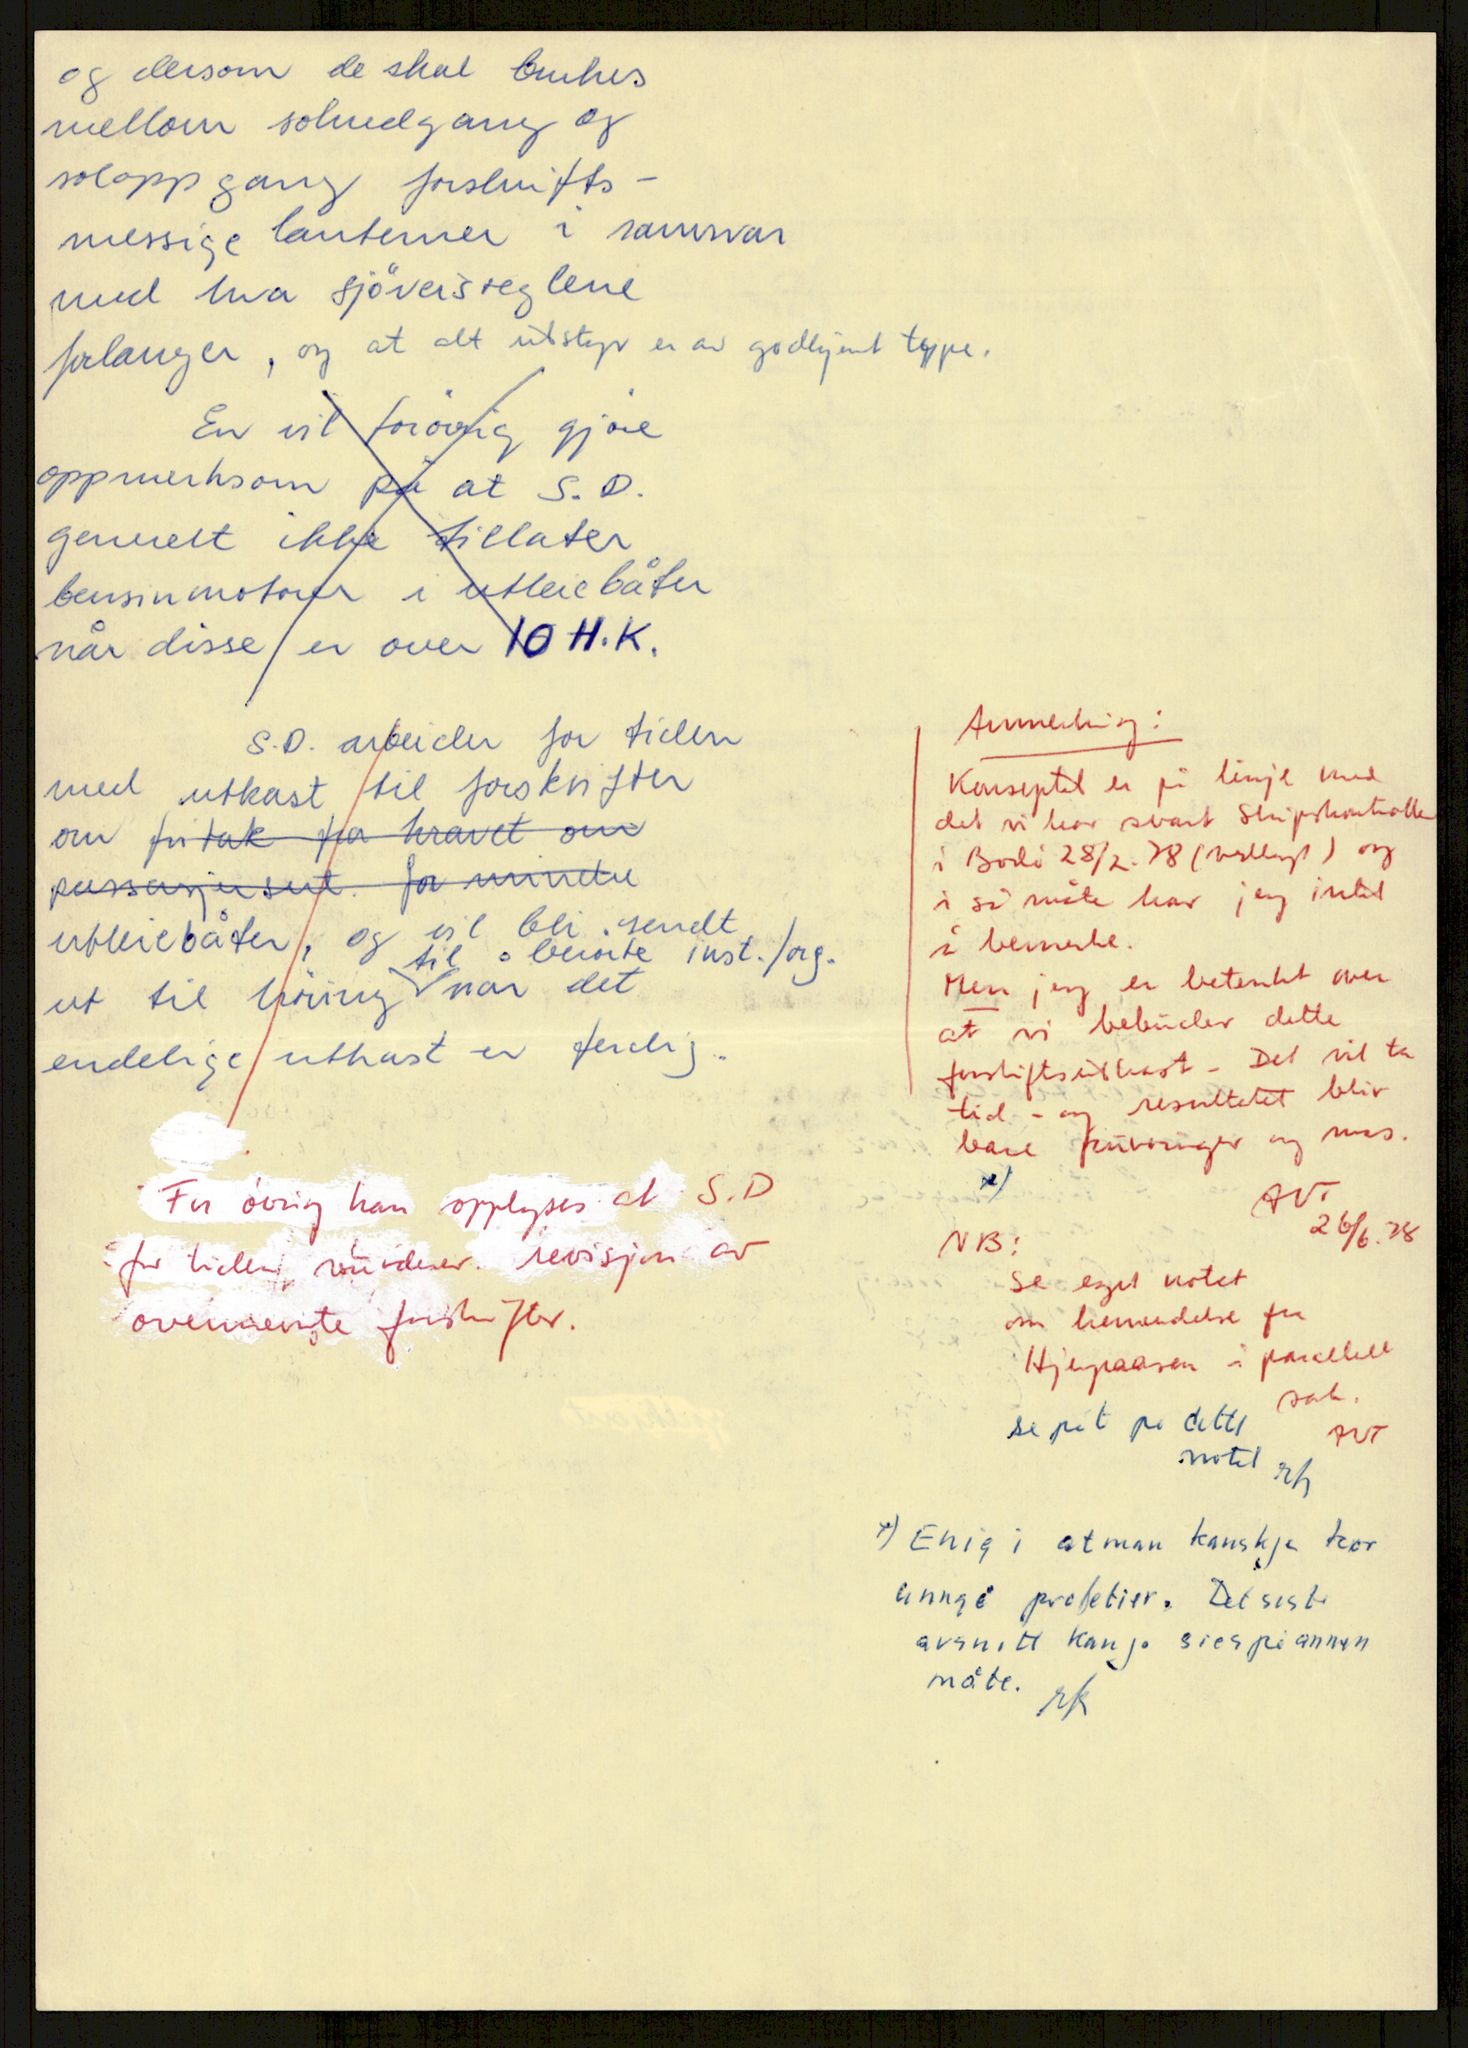 og dersom de skal brukes
mellom solnedgang og
soloppgang forskrifts-
messige lanterner i samsvar
med hva sjöveisreglene
forlanger, og at alt utstyr er av godkjent type.
En vil forövrig gjöre
oppmerksom på at S.D.
generelt ikke tillater
bensinmotorer i utleiebåter
når disse er over 10 H.K.
S.D. arbeider for tiden
med utkast til forskrifter
om fritak fra kravet om
passasjersert. for mindre
utleiebåter, og vil bli sendt
til berörte inst./org.
ut til höring når det
endelige utkast er ferdig.
For övrig kan opplyses at S.D
for tiden vurderer revisjon av
ovennevnte forskrifter.
Anmerkning:
Konseptet er på linje med
det vi har svart Skipskontrollen
i Bodö 28/2.78 (vedlagt) og
i så måte har jeg intet
å bemerke.
Men jeg er betenkt over
at vi bebuder dette
forskriftsutkast - Det vil ta
tid - og resultatet blir
bare purringer og mas.
x)
AVT
26/6.78
NB:
Se eget notat
om henvendelse fra
i parallell
sak.
AVT
se påt på dette
notat rk
x) Enig i at man kanskje bör
unngå profetier. Det siste
avsnitt kan jo sies på annen
måte. rk